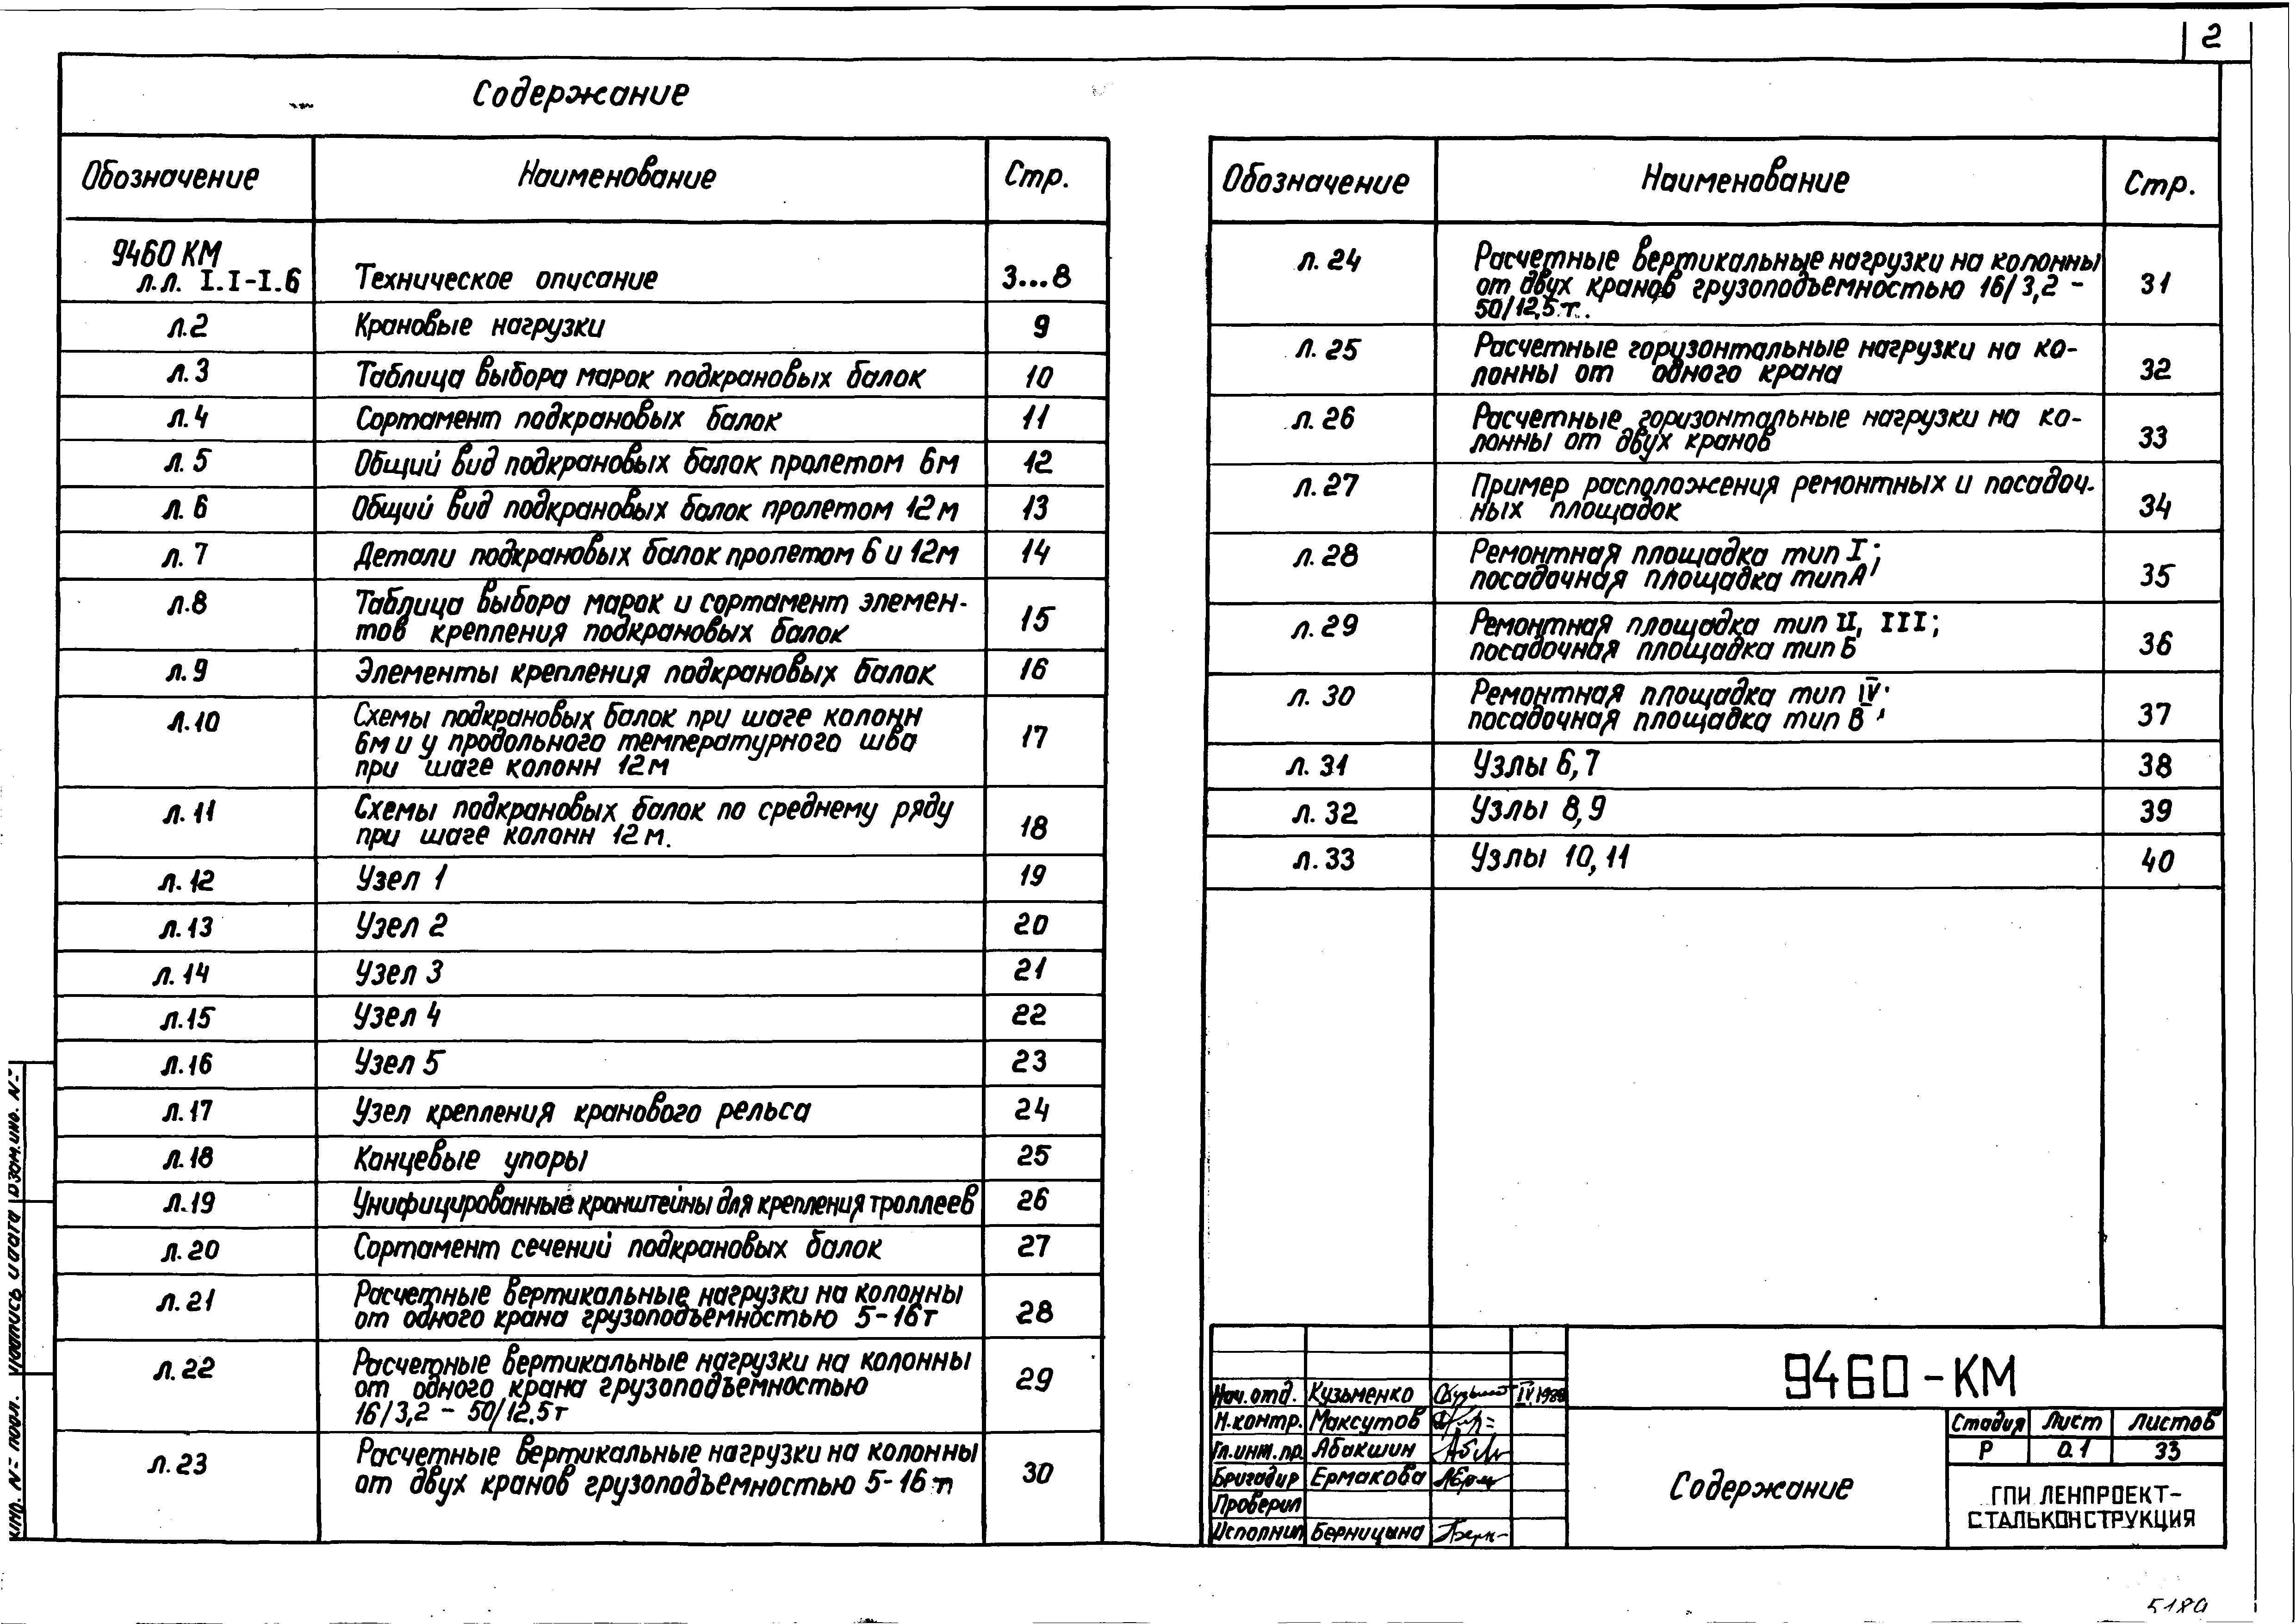 2
Содержание
Обозначение Наименование Стр.
9460 КМ
л.л. I.I-I.6 Техническое описание 3...8
л.2 Крановые нагрузки 9
л.3 Таблица выбора марок подкрановых балок 10
л.4 Сортамент подкрановых балок 11
л.5 Общий вид подкрановых балок пролетом 6м 12
л.6 Общий вид подкрановых балок пролетом 12м 13
л.7 Детали подкрановых балок пролетом 6 и 12м 14
л.8 Таблица выбора марок и сортамент элемен-
тов крепления подкрановых балок 15
л.9 Элементы крепления подкрановых балок 16
л.10 Схемы подкрановых балок при шаге колонн
6м и у продольного температурного шва 17
при шаге колонн 12м
л.11 Схемы подкрановых балок по среднему ряду
при шаге колонн 12м. 18
л.12 Узел 1 19
л.13 Узел 2 20
л.14 Узел 3 21
л.15 Узел 4 22
л.16 Узел 5 23
л.17 Узел крепления кранового рельса 24
л.18 Концевые упоры 25
л.19 Унифицированные кронштейны для крепления троллеев 26
л.20 Сортамент сечений подкрановых балок 27
л.21 Расчетные вертикальные нагрузки на колонны
от одного крана грузоподъемностью 5-16т 28
л.22 Расчетные вертикальные нагрузки на колонны
от одного крана грузоподъемностью 29
16/3,2 - 50/12.5т
л.23 Расчетные вертикальные нагрузки на колонны
от двух кранов грузоподъемностью 5-16т 30
Обозначение Наименование Стр.
л.24 Расчетные вертикальные нагрузки на колонны
от двух кранов грузоподъемностью 16/3,2 - 31
50/12,5.т.
л.25 Расчетные горизонтальные нагрузки на ко-
лонны от одного крана 32
л.26 Расчетные горизонтальные нагрузки на ко-
лонны от двух кранов 33
л.27 Пример расположения ремонтных и посадоч-
ных площадок 34
л.28 Ремонтная площадка тип I;
посадочная площадка тип А 35
л.29 Ремонтная площадка тип II, III;
посадочная площадка тип Б 36
л.30 Ремонтная площадка тип IV;
посадочная площадка тип В 37
л.31 Узлы 6,7 38
л.32 Узлы 8,9 39
л.33 Узлы 10,11 40
Нач.отд. Кузьменко IV.1988
Н.контр. Максутов
Гл.инж.пр. Абакшин
Бригадир Ермакова
Проверил
Исполнил Берницына
9460-КМ
Содержание
Стадия Лист Листов
Р 0.1 33
ГПИ ЛЕНПРОЕКТ-
СТАЛЬКОНСТРУКЦИЯ
Инв. № подл. Подпись и дата Взам.инв. №